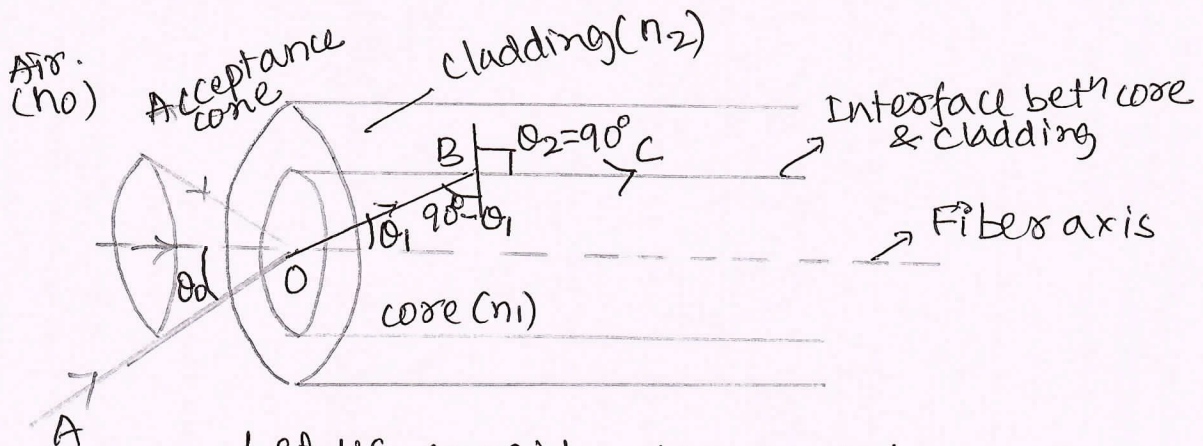 Air.
(n0)
Acceptance
cone
cladding(n2)
Interface betn core
& cladding
B
θ2=90°
C
θ1
90°-θ1
Fiber axis
θ0
O
core (n1)
A